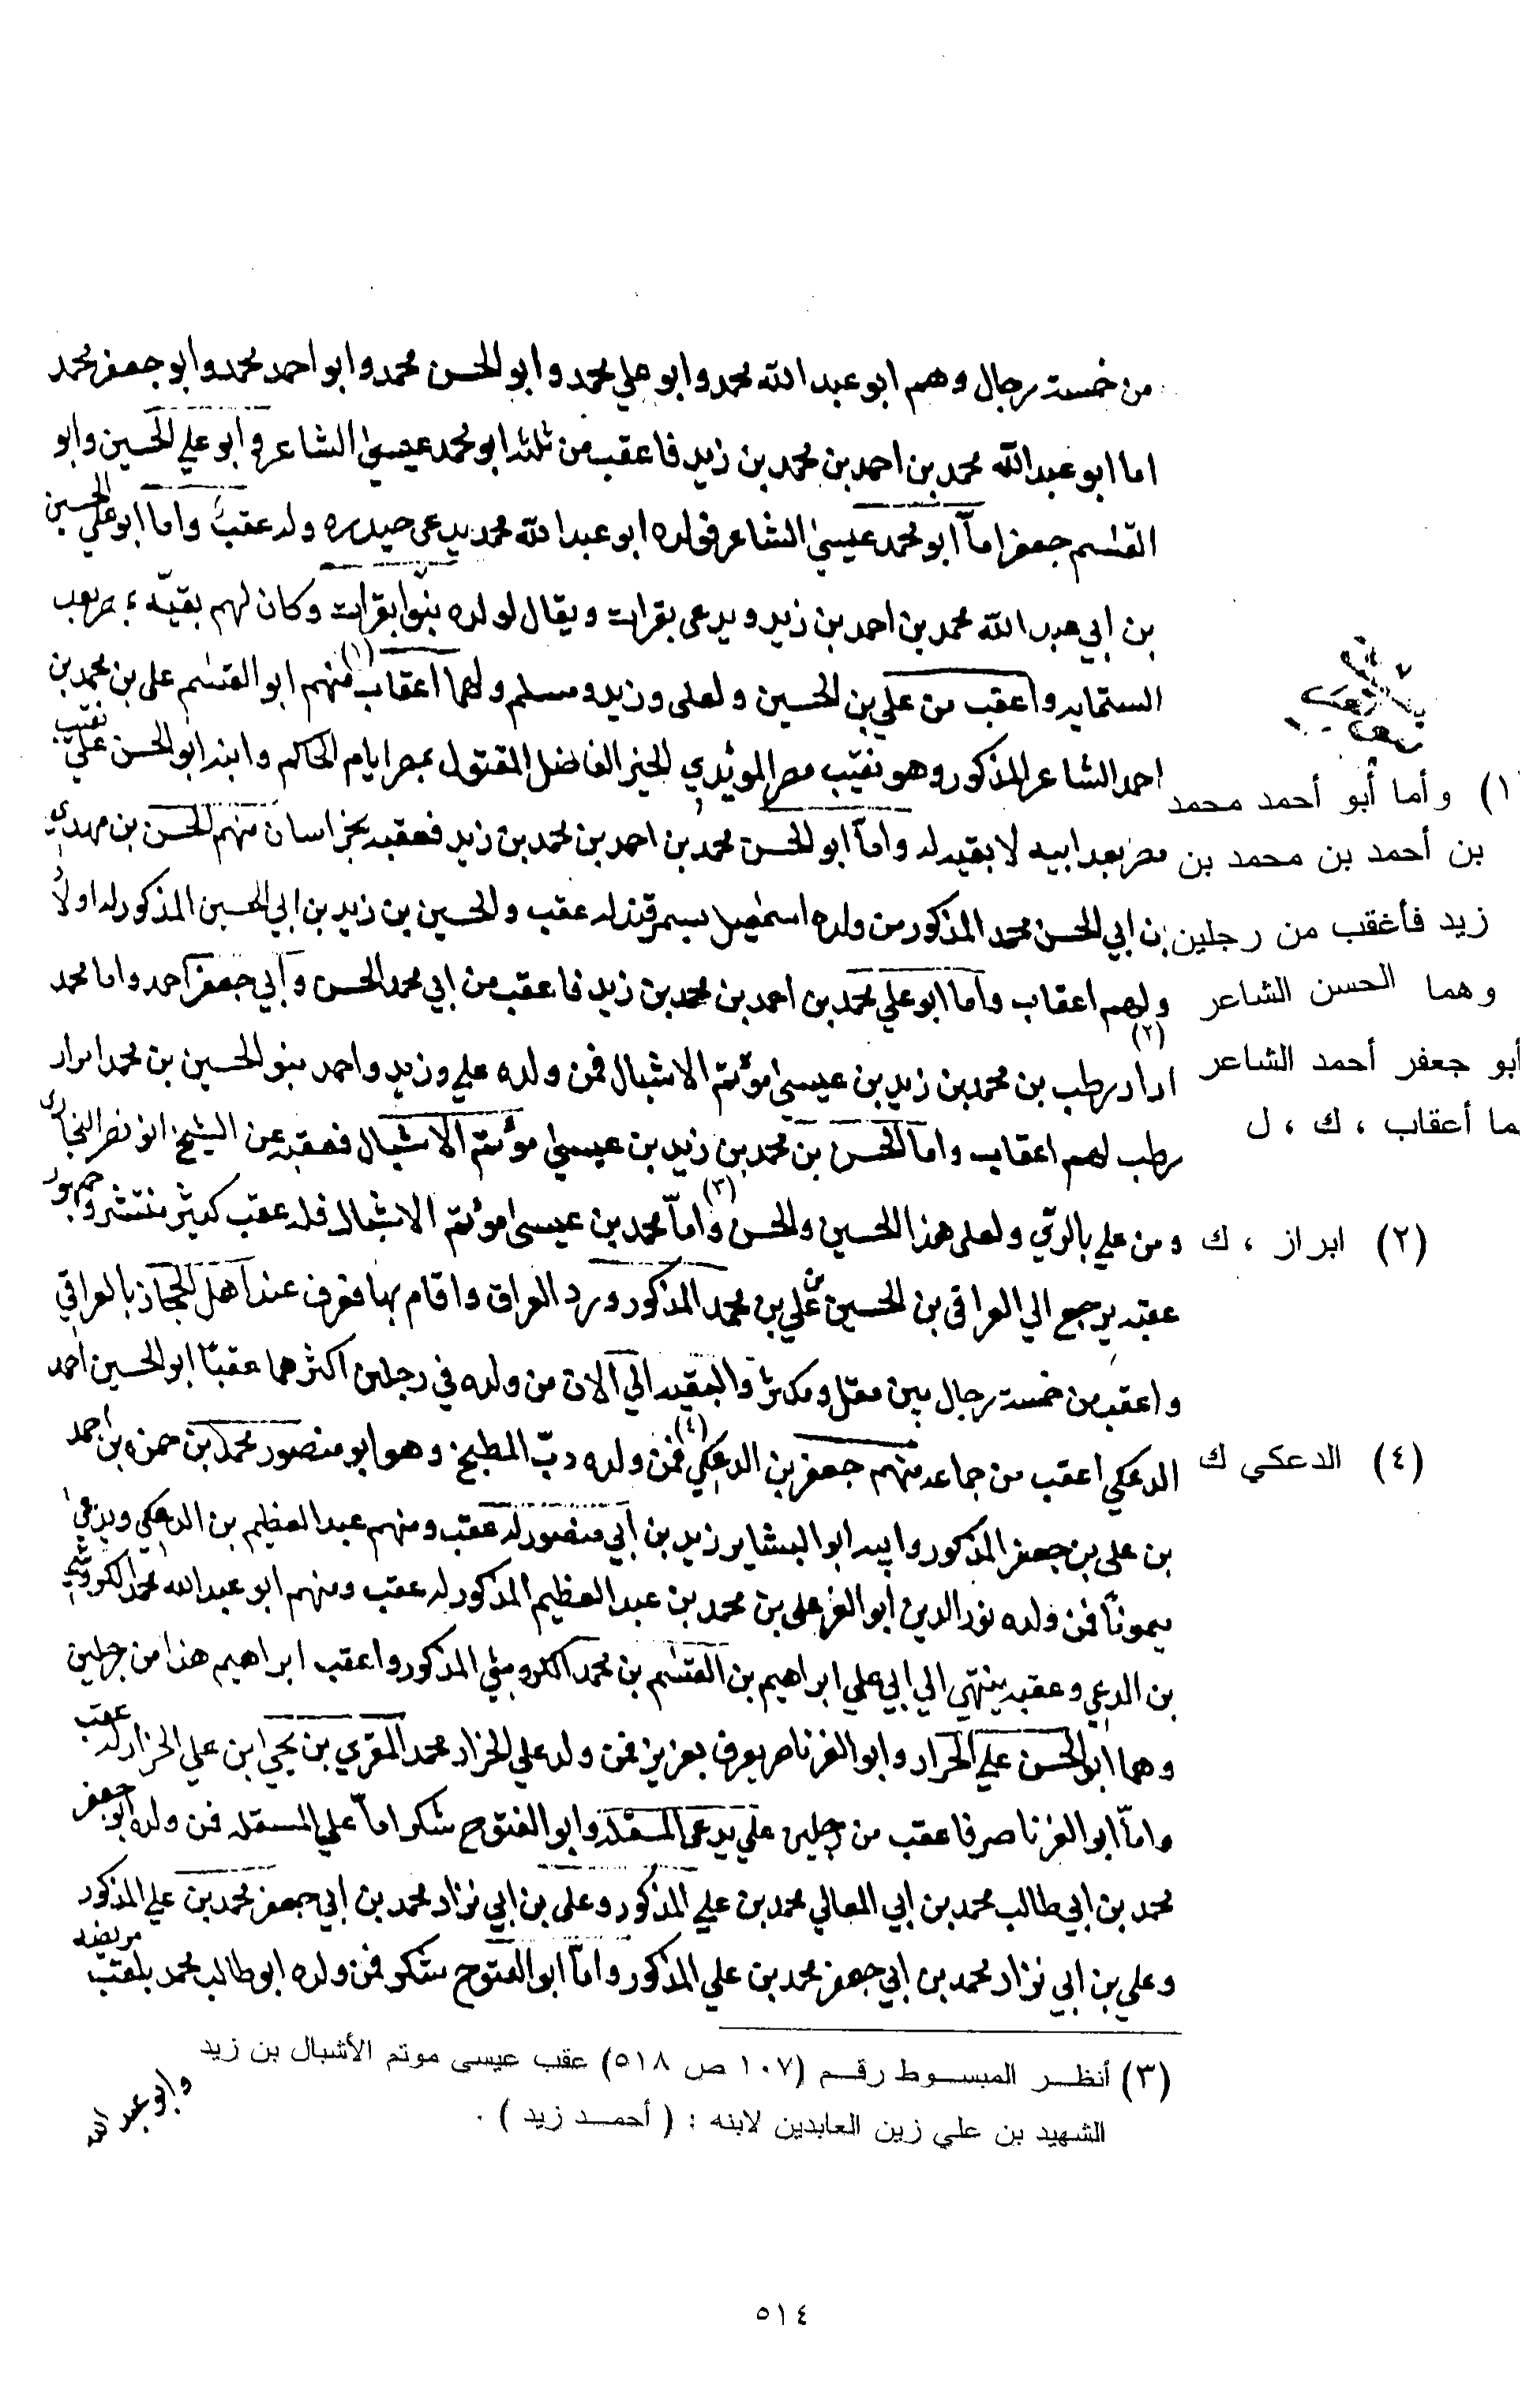 من خمسة رجال وهم ابو عبد الله محمد وابو علي محمد وابو الحسن محمد وابو احمد محمد وابو جعفر محمد
اما ابو عبد الله محمد بن احمد بن محمد بن زيد فاعقب من ثلثه ابو محمد عيسى الشاعر وابو علي الحسين وابو
القسم جعفر اماّ ابو محمد عيسى الشاعر فولده ابو عبد الله محمد يدعى حيدره ولد عقبٌ واما ابو علي الحسين
بن ابي عبد الله محمد بن احمد بن زيد ويدعى بقرات ويقال لولده بنوا بقرات وكان لهم بقيّه
الستمايه واعقب من علي بن الحسين ولعلى وزيد ومسلم ولهما اعقاب (١) منهم ابو القسم على بن محمد بن
احمد الشاعر المذكور وهو نقيب مصر الخير الفاضل المقتول بمصر ايام الحاكم وابنه ابو الحسن علي نقيب
مصر بعد ابيه لا بقيه له واماّ ابو الحسن محمد بن احمد بن محمد بن زيد فعقبه بخراسان منهم الحسن بن مهدي
بن ابي الحسن محمد المذكور من ولده اسمعيل بسمرقند له عقب والحسين بن زيد بن ابي الحسين المذكور له اولاد
ولهم اعقاب واما ابو علي محمد بن احمد بن محمد بن زيد فاعقب من ابي محمد الحسن وابي جعفر احمد واما محمد
(٢) رطب بن محمد بن زيد بن عيسى مؤتم الاشبال فمن ولده علي وزيد واحمد بنو الحسين بن محمد
رطب لهم اعقاب واما الحسن بن محمد بن زيد بن عيسى مؤتم الاشبال فعقبه عن الشيخ ابو نصر البخاري
ومن علي بالري ولعلى هذا الحسين والحسن (٣) واماّ محمد بن عيسى مؤتم الاشبال فله عقب كثير منتشر وجمهور
عقبه يرجع الي العراقى بن الحسين بن علي بن محمد المذكور ورد العراق واقام بها فعرف عند اهل الحجاز بالعراقي
واعقب من خمسة رجال بين مقل ومكثر والبقيه الي الان من ولده في رجلين اكثرهما عقبًا ابو الحسين احمد
الدعكي اعقب من جماعه منهم جعفر بن الدعكي (٤) فمن ولده دبّ المطبخ وهو ابو منصور محمد بن حمزه بن احمد
بن على بن جعفر المذكور وابيه ابو البشاير زيد بن ابي منصور له عقب ومنهم عبد العظيم بن الدعكي ويدعى
ميمونًا فمن ولده نور الدين ابو العز على بن محمد بن عبد العظيم المذكور له عقب ومنهم ابو عبد الله محمد
بن الدعي وعقبه ينتهي الي ابي علي ابراهيم بن القسم بن محمد المذكور واعقب ابراهيم هذا من رجلين
وهما ابو الحسن علي الخراد وابو العز ناصر يعرف بعزيز فمن ولد علي الخراد محمد المقري بن يحيى ابن علي الخراد له عقب
واماّ ابو العز ناصر فاعقب من رجلين علي يدعى وابو الفتوح شكر اماّ علي فمن ولده ابو جعفر
محمد بن ابي طالب محمد بن ابي المعالي محمد بن علي المذكور وعلى بن ابي نزاد محمد بن ابي جعفر محمد بن علي المذكور
وعلي بن ابي نزاد محمد بن ابي جعفر محمد بن علي المذكور واماّ ابو الفتوح شكر فمن ولده ابو طالب محمد يلقب
وابو عبد الله
١) وأما أبو أحمد محمد
بن أحمد بن محمد بن
زيد فأغقب من رجلين
وهما الحسن الشاعر
أبو جعفر أحمد الشاعر
ما أعقاب ، ك ، ل
(٢) ابراز ، ك
(٤) الدعكي ك
(٣) أنظر المبسوط رقم (١٠٧ ص ٥١٨) عقب عيسى موتم الأشبال بن زيد
الشهيد بن علي زين العابدين لابنه : ( أحمد زيد ) .
٥١٤